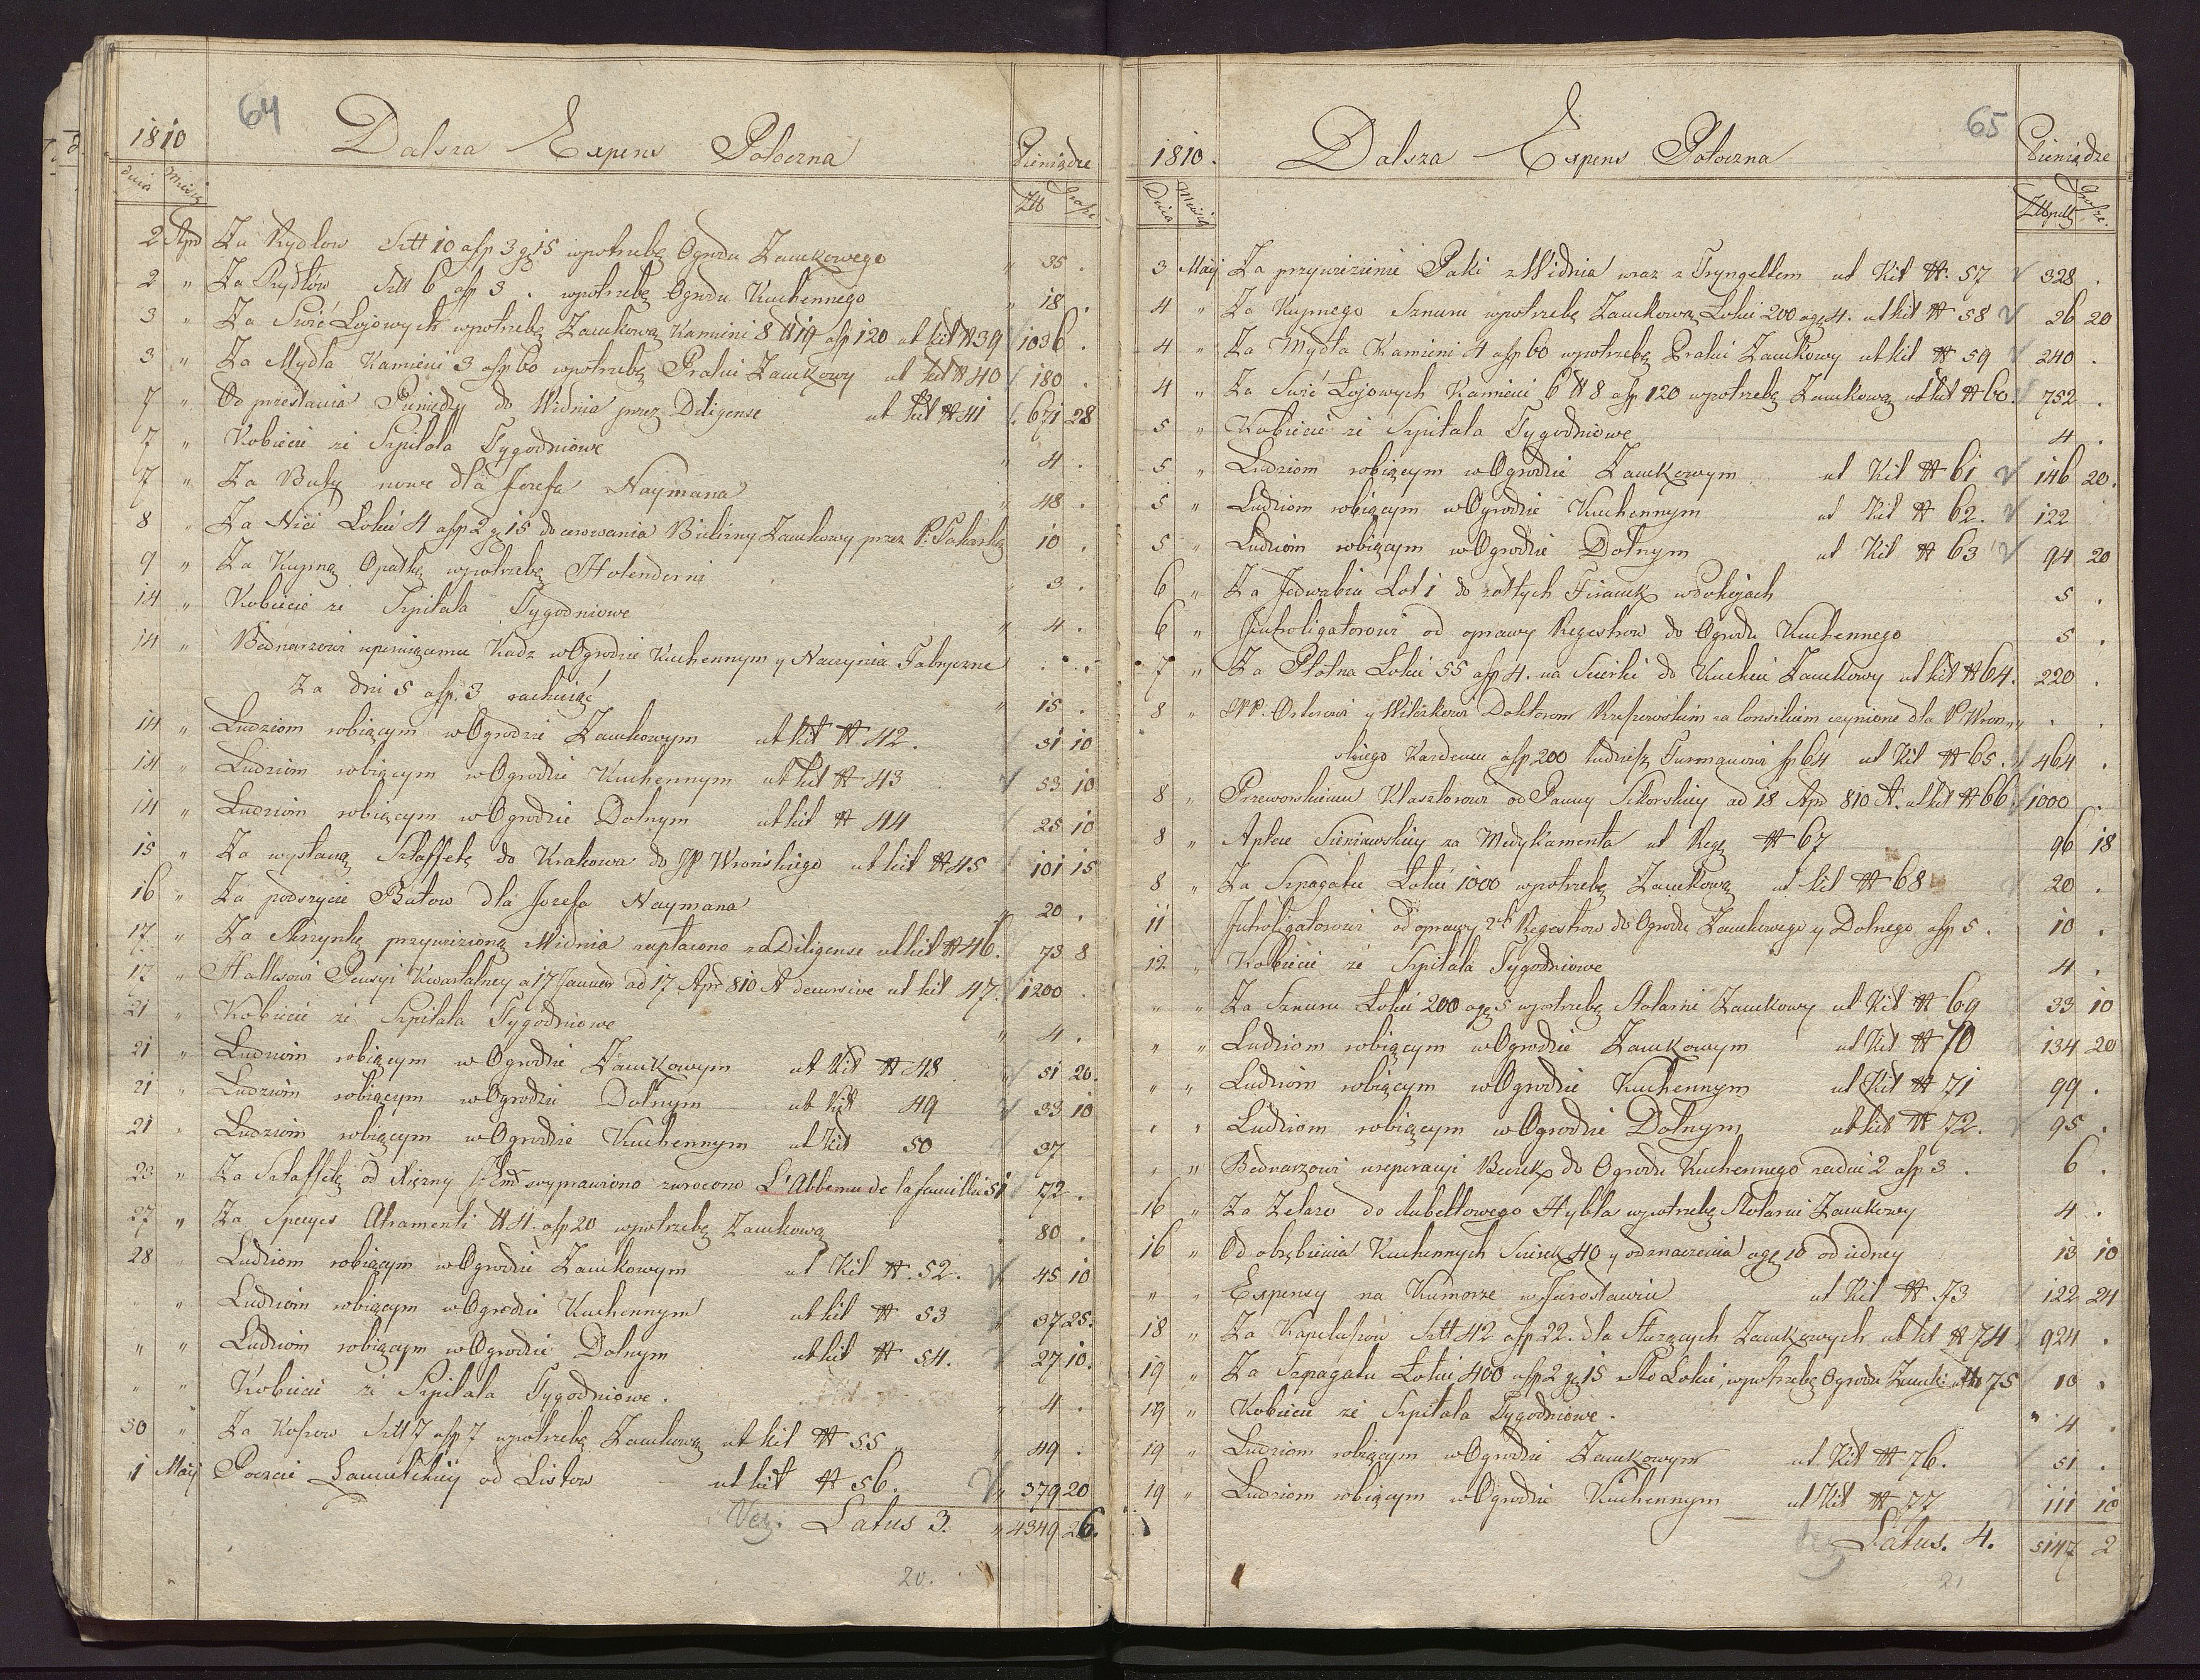 64
1810 Dalsza Expens Potoczna Pieniądze
dnia Miesią Złt Grosze
2 Apr Za Rydlow Sztt 10 a fp 3 g 15 wpotrzebę Ogrodu Zamkowego " 35 .
2 " Za Rydlow Sztt 6 a fp 3 . wpotrzebę Ogrodu Kuchennego " 18 .
3 " Za Swić Łojowych wpotrzebę Zamkową Kamieni 8 ₶ 19 a fp 120 ut kit ₶ 39 1036 .
3 " Za Mydła Kamieni 3 a fp 60 wpotrzebę Pralni Zamkowy ut kit ₶ 40 180 .
7 " Od przesłania Pieniędzy do Widnia przez Diligense ut kit ₶ 41 671 28
7 " Kobiecie ze Szpitala Tygodniowe " 4 .
7 " Za Buty nowe dla Jozefa Naymana " 48 .
8 " Za Nici Łokci 4 a fp 2 g 15 do cerowania Bielizny Zamkowy przez P. 10 .
9 " Za Kupną Opałkę wpotrzebę Holenderni " 3 .
14 " Kobiecie ze Szpitala Tygodniowe " 4 .
14 " Bednarzowi Kadz w Ogrodzie Kuchennym y Naczynia Fabryczne . .
Za dni 5 a fp. 3 rachuiąc " 15 .
14 " Ludziom robiącym w Ogrodzie Zamkowym ut kit ₶ 42. 31 10
14 " Ludziom robiącym w Ogrodzie Kuchennym ut kit ₶ 43 53 10
14 " Ludziom robiącym w Ogrodzie Dolnym ut kit ₶ 44 25 10
15 " Za wysłaną Sztaffetę do Krakowa do JP Wronskiego ut kit ₶ 45 101 15
16 " Za podszycie Butow dla Jozefa Naymana " 20 .
17 " Za Skrzynkę przywiezioną z Widnia zapłacono za Diligense ut kit ₶ 46. 73 8
17 " Hallasowi Pensyi Kwartalney a 17 January ad 17 Apr 810 A decursive ut kit 47. 1200 .
21 " Kobiecie ze Szpitala Tygodniowe " 4 .
21 " Ludziom robiącym w Ogrodzie Zamkowym ut Kit ₶ 48 51 20.
21 " Ludziom robiącym w Ogrodzie Dolnym ut Kit 49 33 10
21 " Ludziom robiącym w Ogrodzie Kuchennym ut Kit 50 37
23 " Za Sztaffetę od Xiężny wyprawiono zwrocono L'Abbemu de la famille 51 72 .
27 " Za Specyes Atramenti ₶ 4. a fp 20 wpotrzebę Zamkową . 80 .
28 " Ludziom robiącym w Ogrodzie Zamkowym ut Kit ₶. 52. 45 10
" " Ludziom robiącym w Ogrodzie Kuchennym ut kit ₶ 53 37 25.
" " Ludziom robiącym w Ogrodzie Dolnym ut kit ₶ 54. 27 10.
" " Kobiecie ze Szpitala Tygodniowe . " 4 .
30 " Za Kosow Sztt 7 a fp 7 wpotrzebę Zamkową ut kit ₶ 55 " 49 .
1 Maij Poczcie od Listow ut kit ₶ 56. " 379 20
Latus 3. " 4349 26.
20.
65
1810. Dalsza Expens Potoczna Pieniądze
Dnia Miesią Złtpolk Grosze.
3 Maij Za przywiezienie Paki z Widnia wraz z Tryngeltem ut Kit ₶. 57 328 .
4 " Za Kupnego Sznuru wpotrzebę Zamkową Łokci 200 a g 4. ut kit ₶ 58 26 20
4 " Za Mydła Kamieni 4 a fp 60 wpotrzebę Pralni Zamkowy ut kit ₶ 59 240 .
4 " Za Swić Łojowych Kamieni 6 ₶ 8 a fp 120 wpotrzebę Zamkową ut kit ₶ 60. 752 .
5 " Kobiecie ze Szpitala Tygodniowe 4 .
5 " Ludziom robiącym w Ogrodzie Zamkowym ut Kit ₶ 61 146 20.
5 " Ludziom robiącym w Ogrodzie Kuchennym ut Kit ₶ 62. 122
5 " Ludziom robiącym w Ogrodzie Dolnym ut Kit ₶ 63 94 20
6 " Za Jedwabiu Łot 1 do zołtych Firanek w Pokojach 5 .
6 " Jntroligatorowi od oprawy Regestrow do Ogrodu Kuchennego 5 .
7 " Za Płotna Łokci 55 a fp 4. na Scierki do Kuchni Zamkowy ut kit ₶ 64. 220 .
8 " PP. Osterowi y Witoszkowi Doktorom Rzeszowskim za Consilium czynione dla P Wron " . .
skiego Kardemu a fp 200 tudziesz Furmanowi fp 64 ut Kit ₶ 65. 464 .
8 " Przeworskiemu Klasztorowi od Panny Sikorskiey ad 18 Apr 810 A. ut kit ₶ 66. 1000
8 " Aptece Sieniawskiey za Medykamenta ut Reg ₶ 67 96 18
8 " Za Szpagatu Łokci 1000 wpotrzebę Zamkową ut kit ₶ 68 20 .
11 Jntroligatorowi od oprawy 2ch Regestrow do Ogrodu Zamkowego y Dolnego a fp 5. 10 .
12 " Kobiecie ze Szpitala Tygodniowe 4 .
" " Za Sznuru Łokci 200 a g 5 wpotrzebę Stolarni Zamkowy ut Kit ₶ 69 33 10
" " Ludziom robiącym w Ogrodzie Zamkowym ut Kit ₶ 70 134 20
" " Ludziom robiącym w Ogrodzie Kuchennym ut Kit ₶ 71 99 .
" " Ludziom robiącym w Ogrodzie Dolnym ut kit ₶ 72. 95 .
" " Bednarzowi wreperacyi Beczek do Ogrodu Kuchennego za dni 2 a fp 3 . 6 .
16 " Za Zelazo do dubeltowego Hybla wpotrzebę Stolarni Zamkowy 4 .
16 " Od obrębienia Kuchennych Scierek 40 y odznaczenia a g 10 od iedney 13 10
" " Expensy na Kumorze w Jarosławiu ut Kit ₶ 73 122 24
18 " Za Kapeluszow Sztt 42 a fp 22. dla Służących Zamkowych ut kit ₶ 74 924 .
19 " Za Szpagatu Łokci 400 a fp 2 g 15 Sto Łokci, wpotrzebę Ogrodu Zamk: 75 10 .
19 " Kobiecie ze Szpitala Tygodniowe . " 4 .
19 " Ludziom robiącym w Ogrodzie Zamkowym ut Kit ₶ 76. 51 .
19 " Ludziom robiącym w Ogrodzie Kuchennym ut Kit ₶ 77 111 10
Latus. 4. 5147 2
21